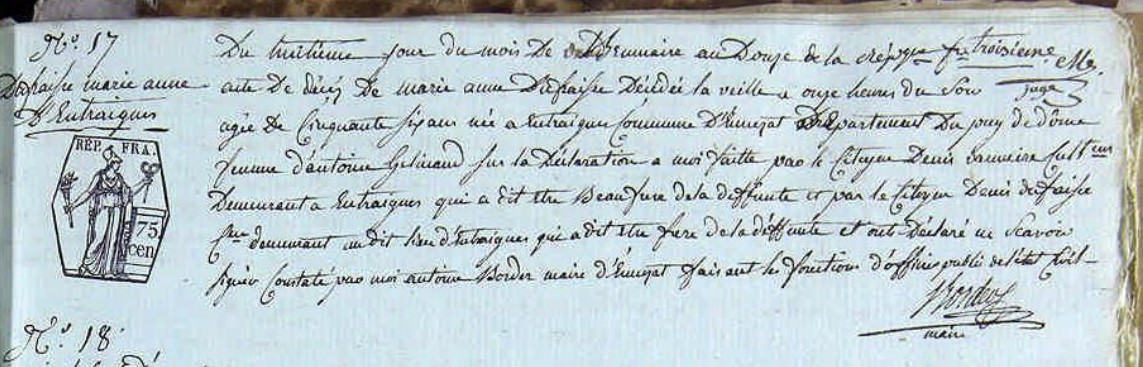 N.o 17
Defraisse marie anne
D'Entraigues
REP. FRA.
75
cen
Du huitieme jour du mois De an Douze de la rép.que f.se troisieme
acte De décés De marie anne Defraisse Décédée la veille a onze heures du Soir juge
agée De Cinquante six ans née a Entraigues Commune D'Ennezat Département Du puy de dôme
femme d'antoine sur la Déclaration a moi faitte par le Citoyen Denis Cult.eur
Demeurant a Entraigues qui a dit etre Beaufrere de la deffunte et par le Citoyen Denis defraisse
C.eur demeurant au dit lieu d'Entraigues qui a dit etre frere de la déffunte et ont Déclaré ne Scavoir
signer Constaté par moi antoine Border maire d'Ennezat faisant les fonctions d'officier public de l'état Civil
Border
maire
N.o 18